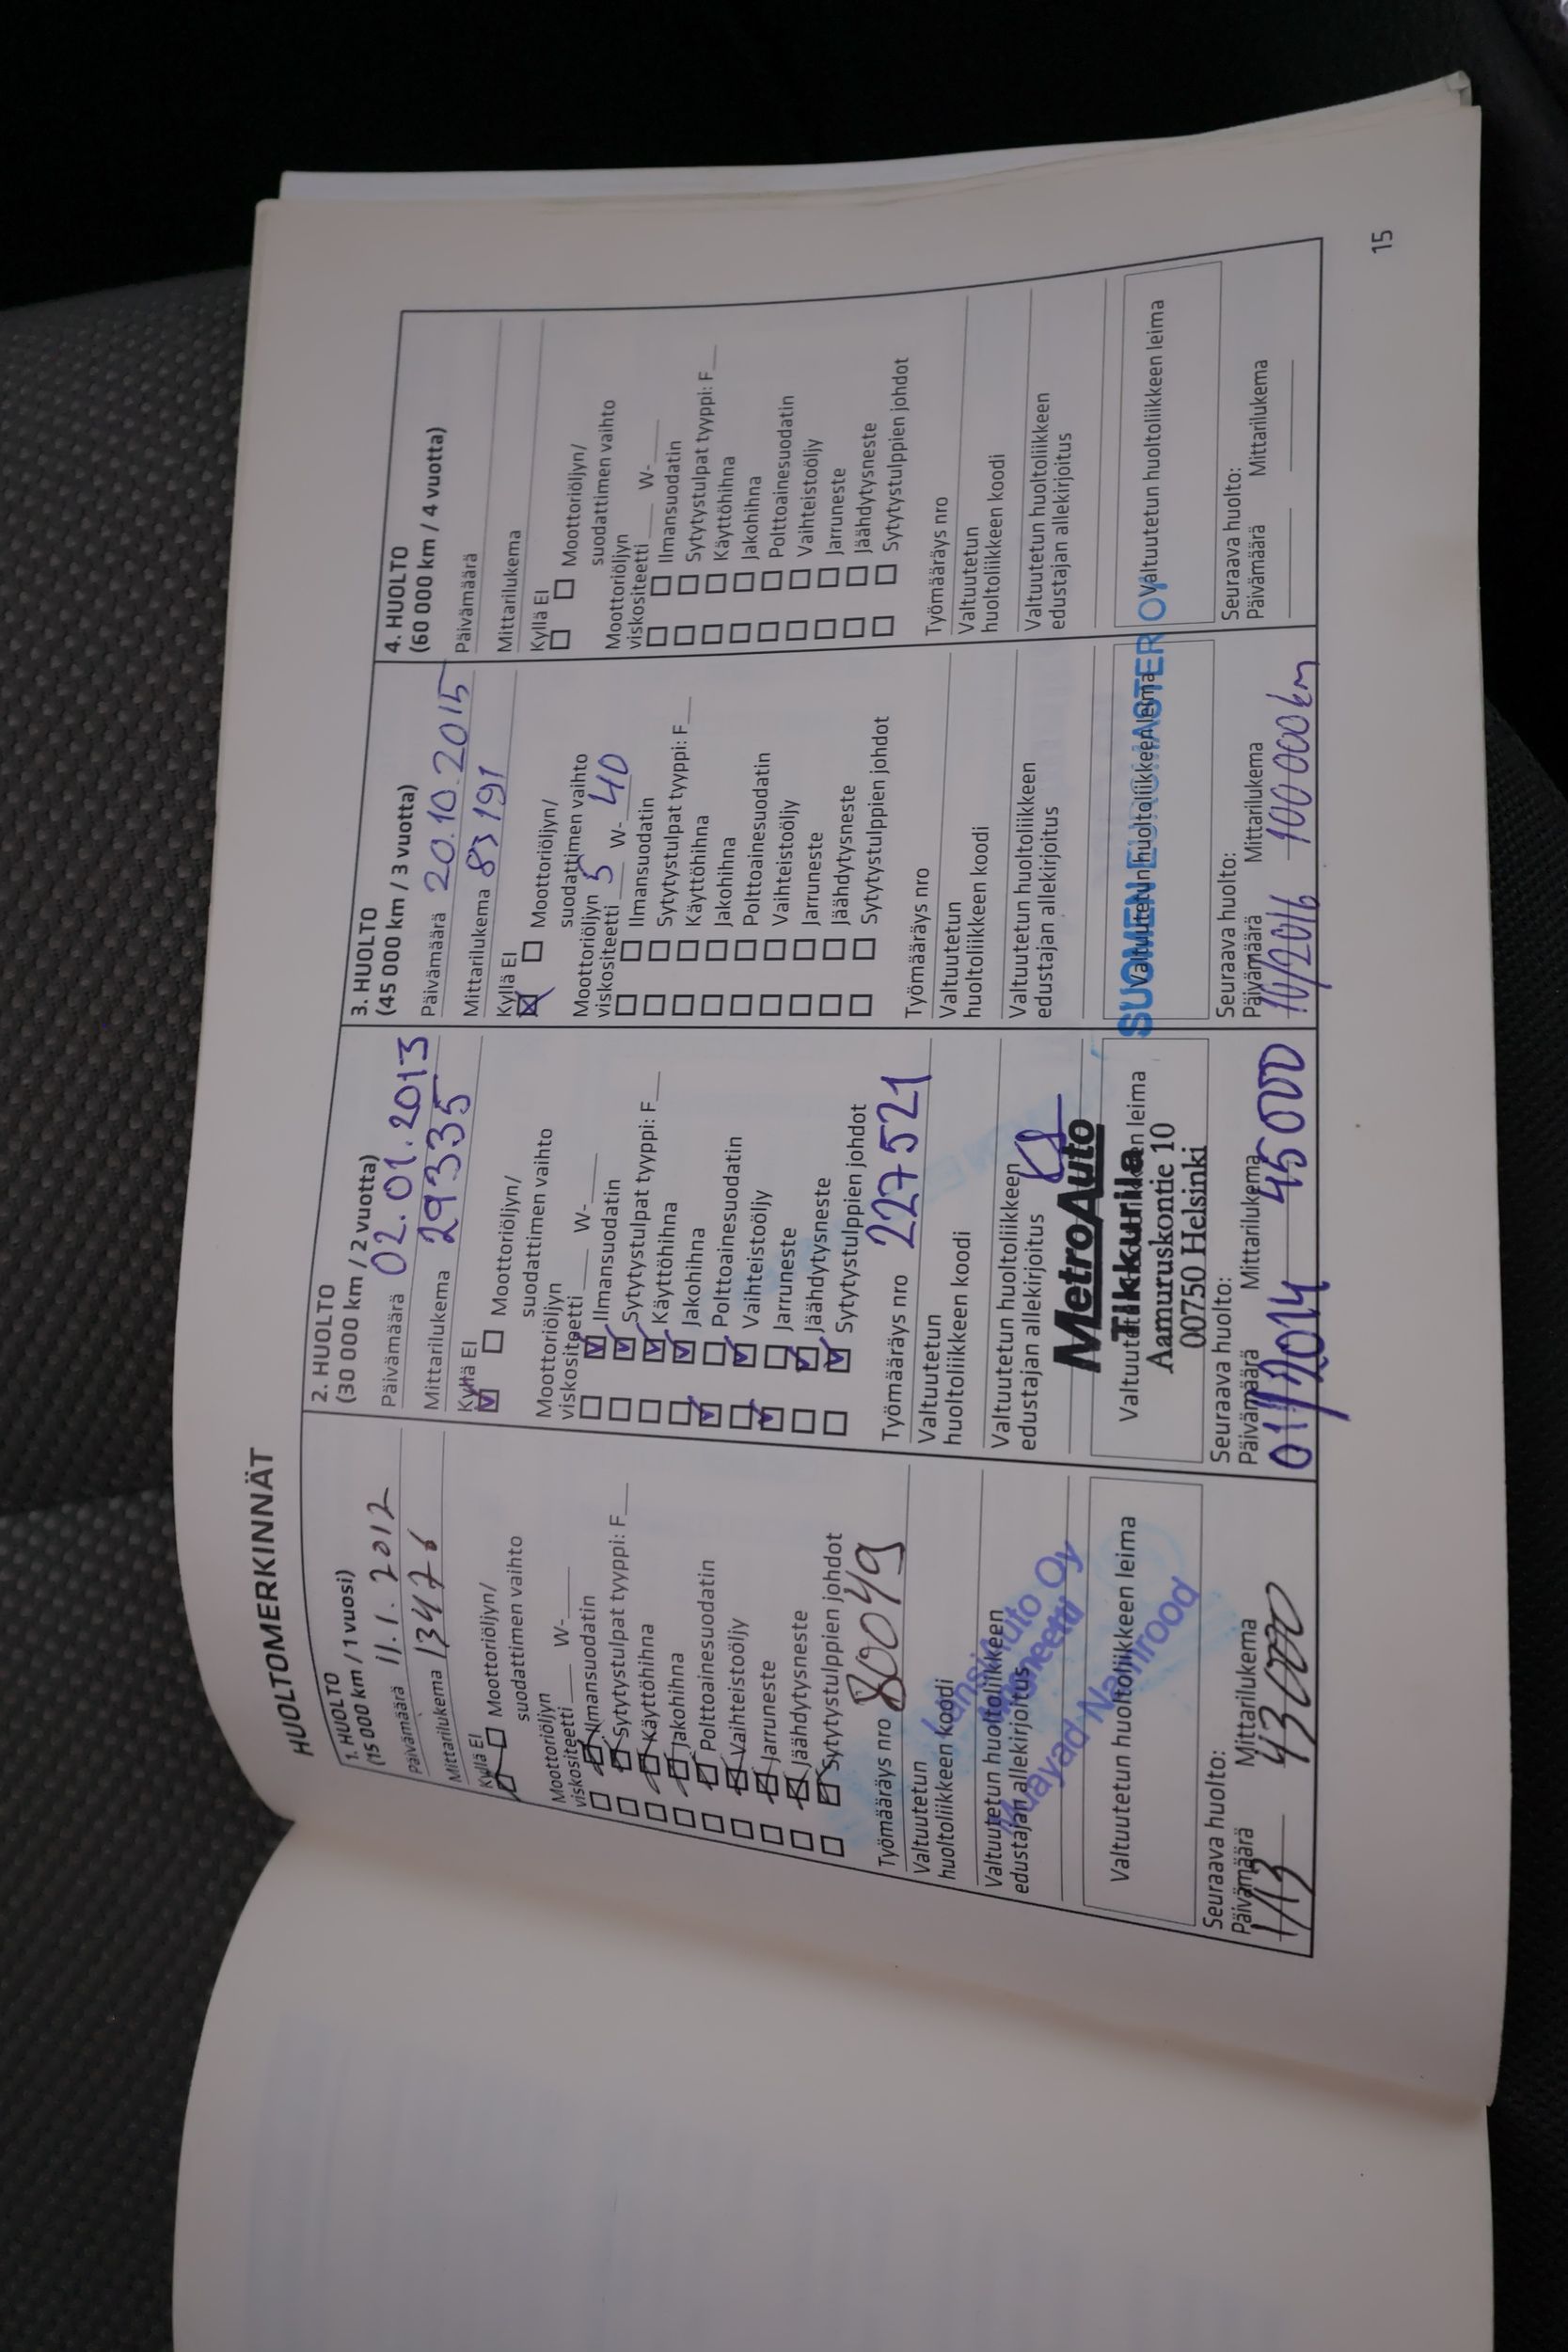 HUOLTOMERKINNÄT
1. HUOLTO
(15 000 km / 1 vuosi)
Päivämäärä 11.1.2012
Mittarilukema 13476
Kyllä EI
Moottoriöljyn/
suodattimen vaihto
Moottoriöljyn
viskositeetti ____ W-____
Ilmansuodatin
Sytytystulpat tyyppi: F__
Käyttöhihna
Jakohihna
Polttoainesuodatin
Vaihteistoöljy
Jarruneste
Jäähdytysneste
Sytytystulppien johdot
Työmääräys nro 80049
Valtuutetun
huoltoliikkeen koodi
Valtuutetun huoltoliikkeen
edustajan allekirjoitus
Länsiauto Oy
Muayad Namrood
Valtuutetun huoltoliikkeen leima
Seuraava huolto:
Päivämäärä Mittarilukema
1/13 43000
2. HUOLTO
(30 000 km / 2 vuotta)
Päivämäärä 02.01.2013
Mittarilukema 29335
Kyllä EI
Moottoriöljyn/
suodattimen vaihto
Moottoriöljyn
viskositeetti ____ W-____
Ilmansuodatin
Sytytystulpat tyyppi: F__
Käyttöhihna
Jakohihna
Polttoainesuodatin
Vaihteistoöljy
Jarruneste
Jäähdytysneste
Sytytystulppien johdot
Työmääräys nro 227521
Valtuutetun
huoltoliikkeen koodi
Valtuutetun huoltoliikkeen
edustajan allekirjoitus
MetroAuto
Tikkurila
Valtuutetun huoltoliikkeen leima
Aamuruskontie 10
00750 Helsinki
Seuraava huolto:
Päivämäärä Mittarilukema
01/2014 45000
3. HUOLTO
(45 000 km / 3 vuotta)
Päivämäärä 20.10.2015
Mittarilukema 83191
Kyllä EI
Moottoriöljyn/
suodattimen vaihto
Moottoriöljyn
viskositeetti 5 W-40
Ilmansuodatin
Sytytystulpat tyyppi: F__
Käyttöhihna
Jakohihna
Polttoainesuodatin
Vaihteistoöljy
Jarruneste
Jäähdytysneste
Sytytystulppien johdot
Työmääräys nro
Valtuutetun
huoltoliikkeen koodi
Valtuutetun huoltoliikkeen
edustajan allekirjoitus
Valtuutetun huoltoliikkeen leima
SUOMEN EUROMASTER OY
Seuraava huolto:
Päivämäärä Mittarilukema
10/2016 100000km
4. HUOLTO
(60 000 km / 4 vuotta)
Päivämäärä
Mittarilukema
Kyllä EI
Moottoriöljyn/
suodattimen vaihto
Moottoriöljyn
viskositeetti ____ W-____
Ilmansuodatin
Sytytystulpat tyyppi: F__
Käyttöhihna
Jakohihna
Polttoainesuodatin
Vaihteistoöljy
Jarruneste
Jäähdytysneste
Sytytystulppien johdot
Työmääräys nro
Valtuutetun
huoltoliikkeen koodi
Valtuutetun huoltoliikkeen
edustajan allekirjoitus
Valtuutetun huoltoliikkeen leima
Seuraava huolto:
Päivämäärä Mittarilukema
15